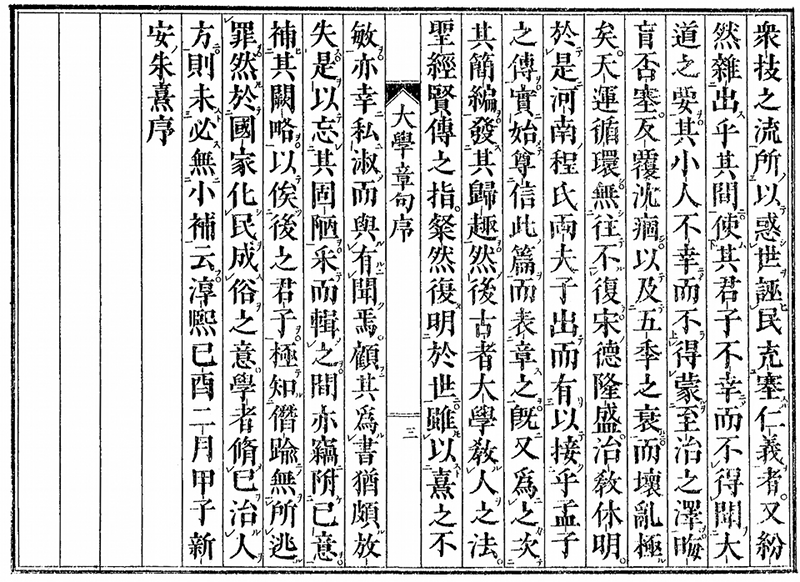 衆技之流所以惑世誣民充塞仁義者又紛
然雜出乎其間使其君子不幸而不得聞大
道之要其小人不幸而不得蒙至治之澤晦
盲否塞反覆沈痼以及五季之衰而壞亂極
矣天運循環無往不復宋德隆盛治敎休明
於是河南程氏兩夫子出而有以接乎孟子
之傳實始尊信此篇而表章之旣又爲之次
其簡編發其歸趣然後古者大學敎人之法
聖經賢傳之指粲然復明於世雖以熹之不
大學章句序
三
敏亦幸私淑而與有聞焉顧其爲書猶頗放
失是以忘其固陋采而輯之間亦竊附已意
補其闕略以俟後之君子極知僭踰無所逃
罪然於國家化民成俗之意學者脩已治人
方則未必無小補云淳熙已酉二月甲子新
安朱熹序